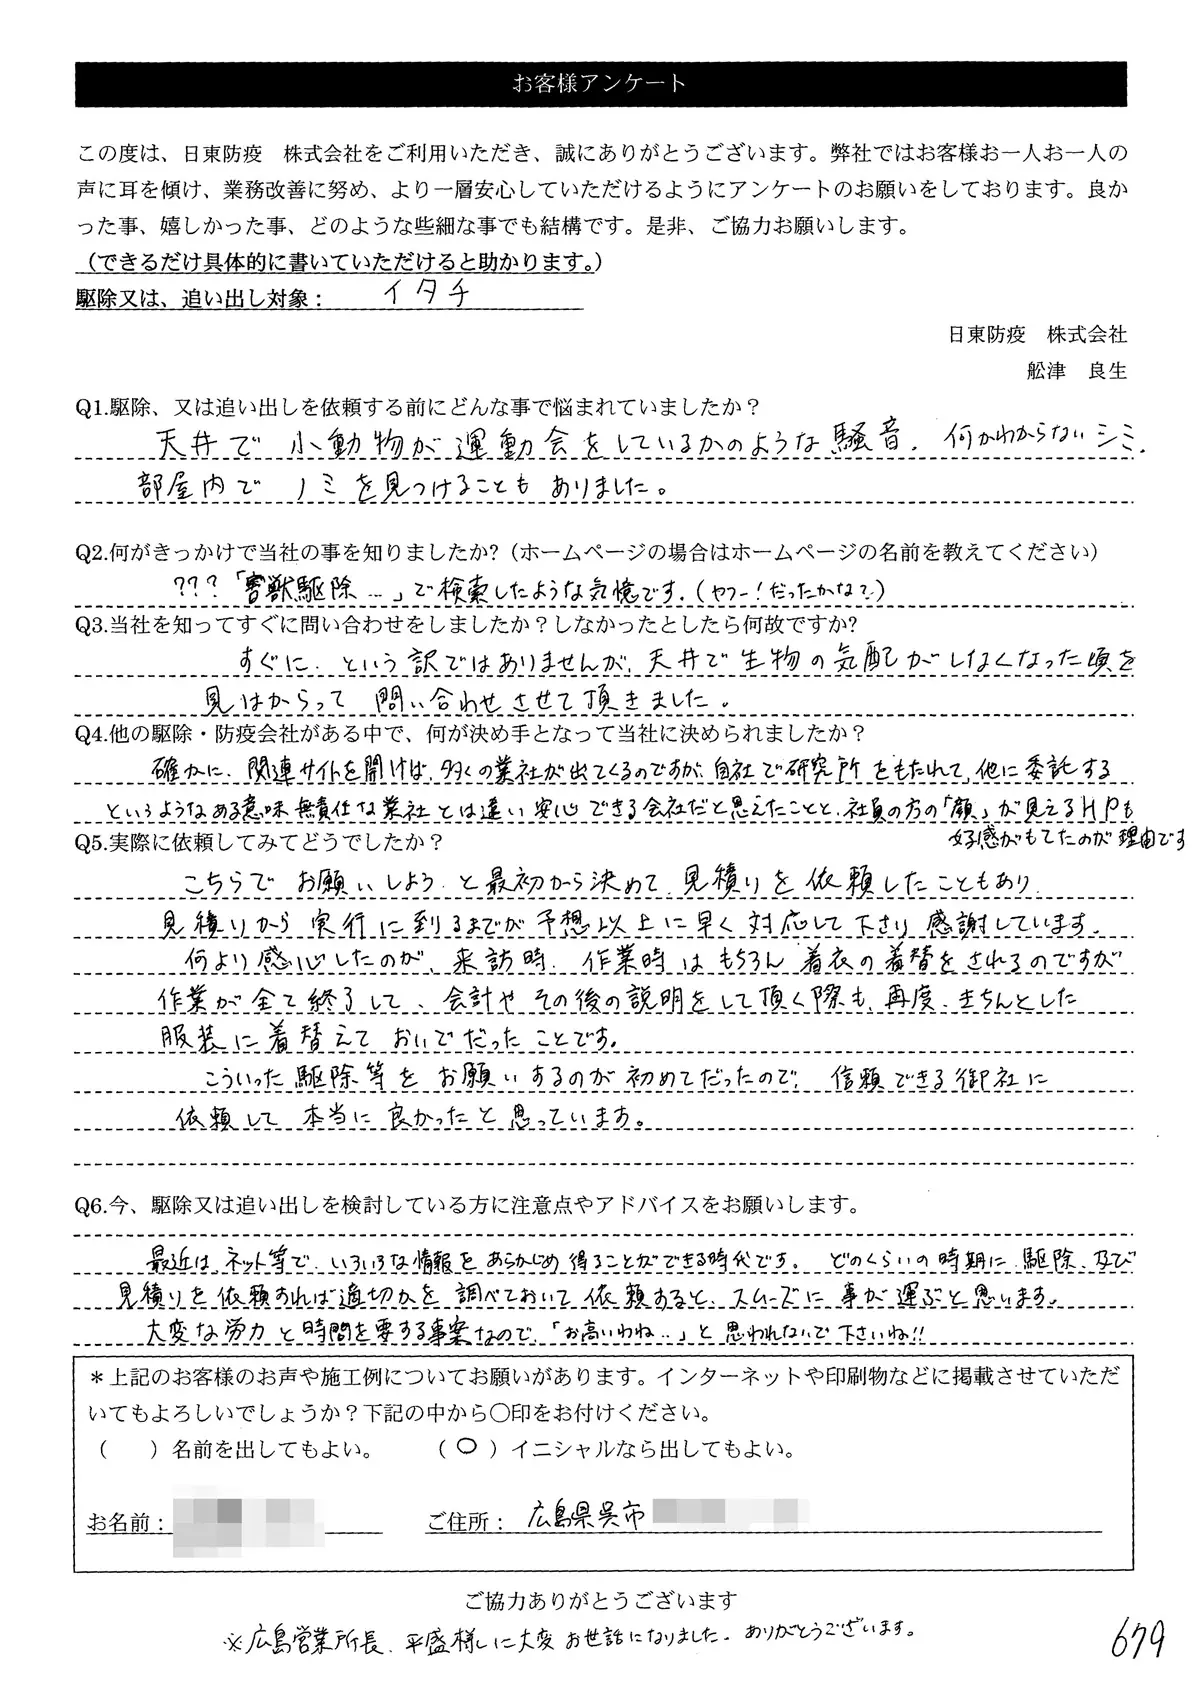 お客様アンケート
この度は、日東防疫　株式会社をご利用いただき、誠にありがとうございます。弊社ではお客様お一人お一人の
声に耳を傾け、業務改善に努め、より一層安心していただけるようにアンケートのお願いをしております。良か
った事、嬉しかった事、どのような些細な事でも結構です。是非、ご協力お願いします。
（できるだけ具体的に書いていただけると助かります。）
駆除又は、追い出し対象： イタチ
日東防疫　株式会社
舩津　良生
Q1.駆除、又は追い出しを依頼する前にどんな事で悩まれていましたか？
天井で 小動物が運動会をしているかのような騒音。何かわからないシミ、
部屋内で ノミを見つけることも ありました。
Q2.何がきっかけで当社の事を知りましたか?（ホームページの場合はホームページの名前を教えてください）
???「害獣駆除…」で検索したような気憶です。(ヤフー!だったかな?)
Q3.当社を知ってすぐに問い合わせをしましたか？しなかったとしたら何故ですか?
すぐに、という訳ではありませんが、天井で生物の気配がしなくなった頃を
見はからって 問い合わせさせて頂きました。
Q4.他の駆除・防疫会社がある中で、何が決め手となって当社に決められましたか？
確かに、関連サイトを開けば、多くの業社が出てくるのですが、自社で研究所をもたれて、他に委託する
というようなある意味無責任な業社とは違い安心できる会社だと思えたことと、社員の方の「顔」が見えるHPも
好感がもてたのが理由です
Q5.実際に依頼してみてどうでしたか？
こちらで お願いしよう と最初から決めて、見積りを依頼したこともあり、
見積りから実行に到るまでが予想以上に早く対応して下さり感謝しています。
何より感心したのが、来訪時、作業時はもちろん着衣の着替をされるのですが
作業が全て終了して、会計やその後の説明をして頂く際も、再度、きちんとした
服装に着替えて おいでだったことです。
こういった駆除等をお願いするのが初めてだったので、信頼できる御社に
依頼して本当に良かったと思っています。
Q6.今、駆除又は追い出しを検討している方に注意点やアドバイスをお願いします。
最近は、ネット等で、いろいろな情報をあらかじめ得ることができる時代です。 どのくらいの時期に、駆除、及び
見積りを依頼すれば適切かを調べておいて依頼すると、スムーズに事が運ぶと思います。
大変な労力と時間を要する事案なので、「お高いわね…」と思われないで下さいね!!
＊上記のお客様のお声や施工例についてお願いがあります。インターネットや印刷物などに掲載させていただ
いてもよろしいでしょうか？下記の中から〇印をお付けください。
（　　）名前を出してもよい。　（○）イニシャルなら出してもよい。
お名前：　ご住所： 広島県呉市
ご協力ありがとうございます
※広島営業所長、平盛様には大変お世話になりました。ありがとうございます。
679